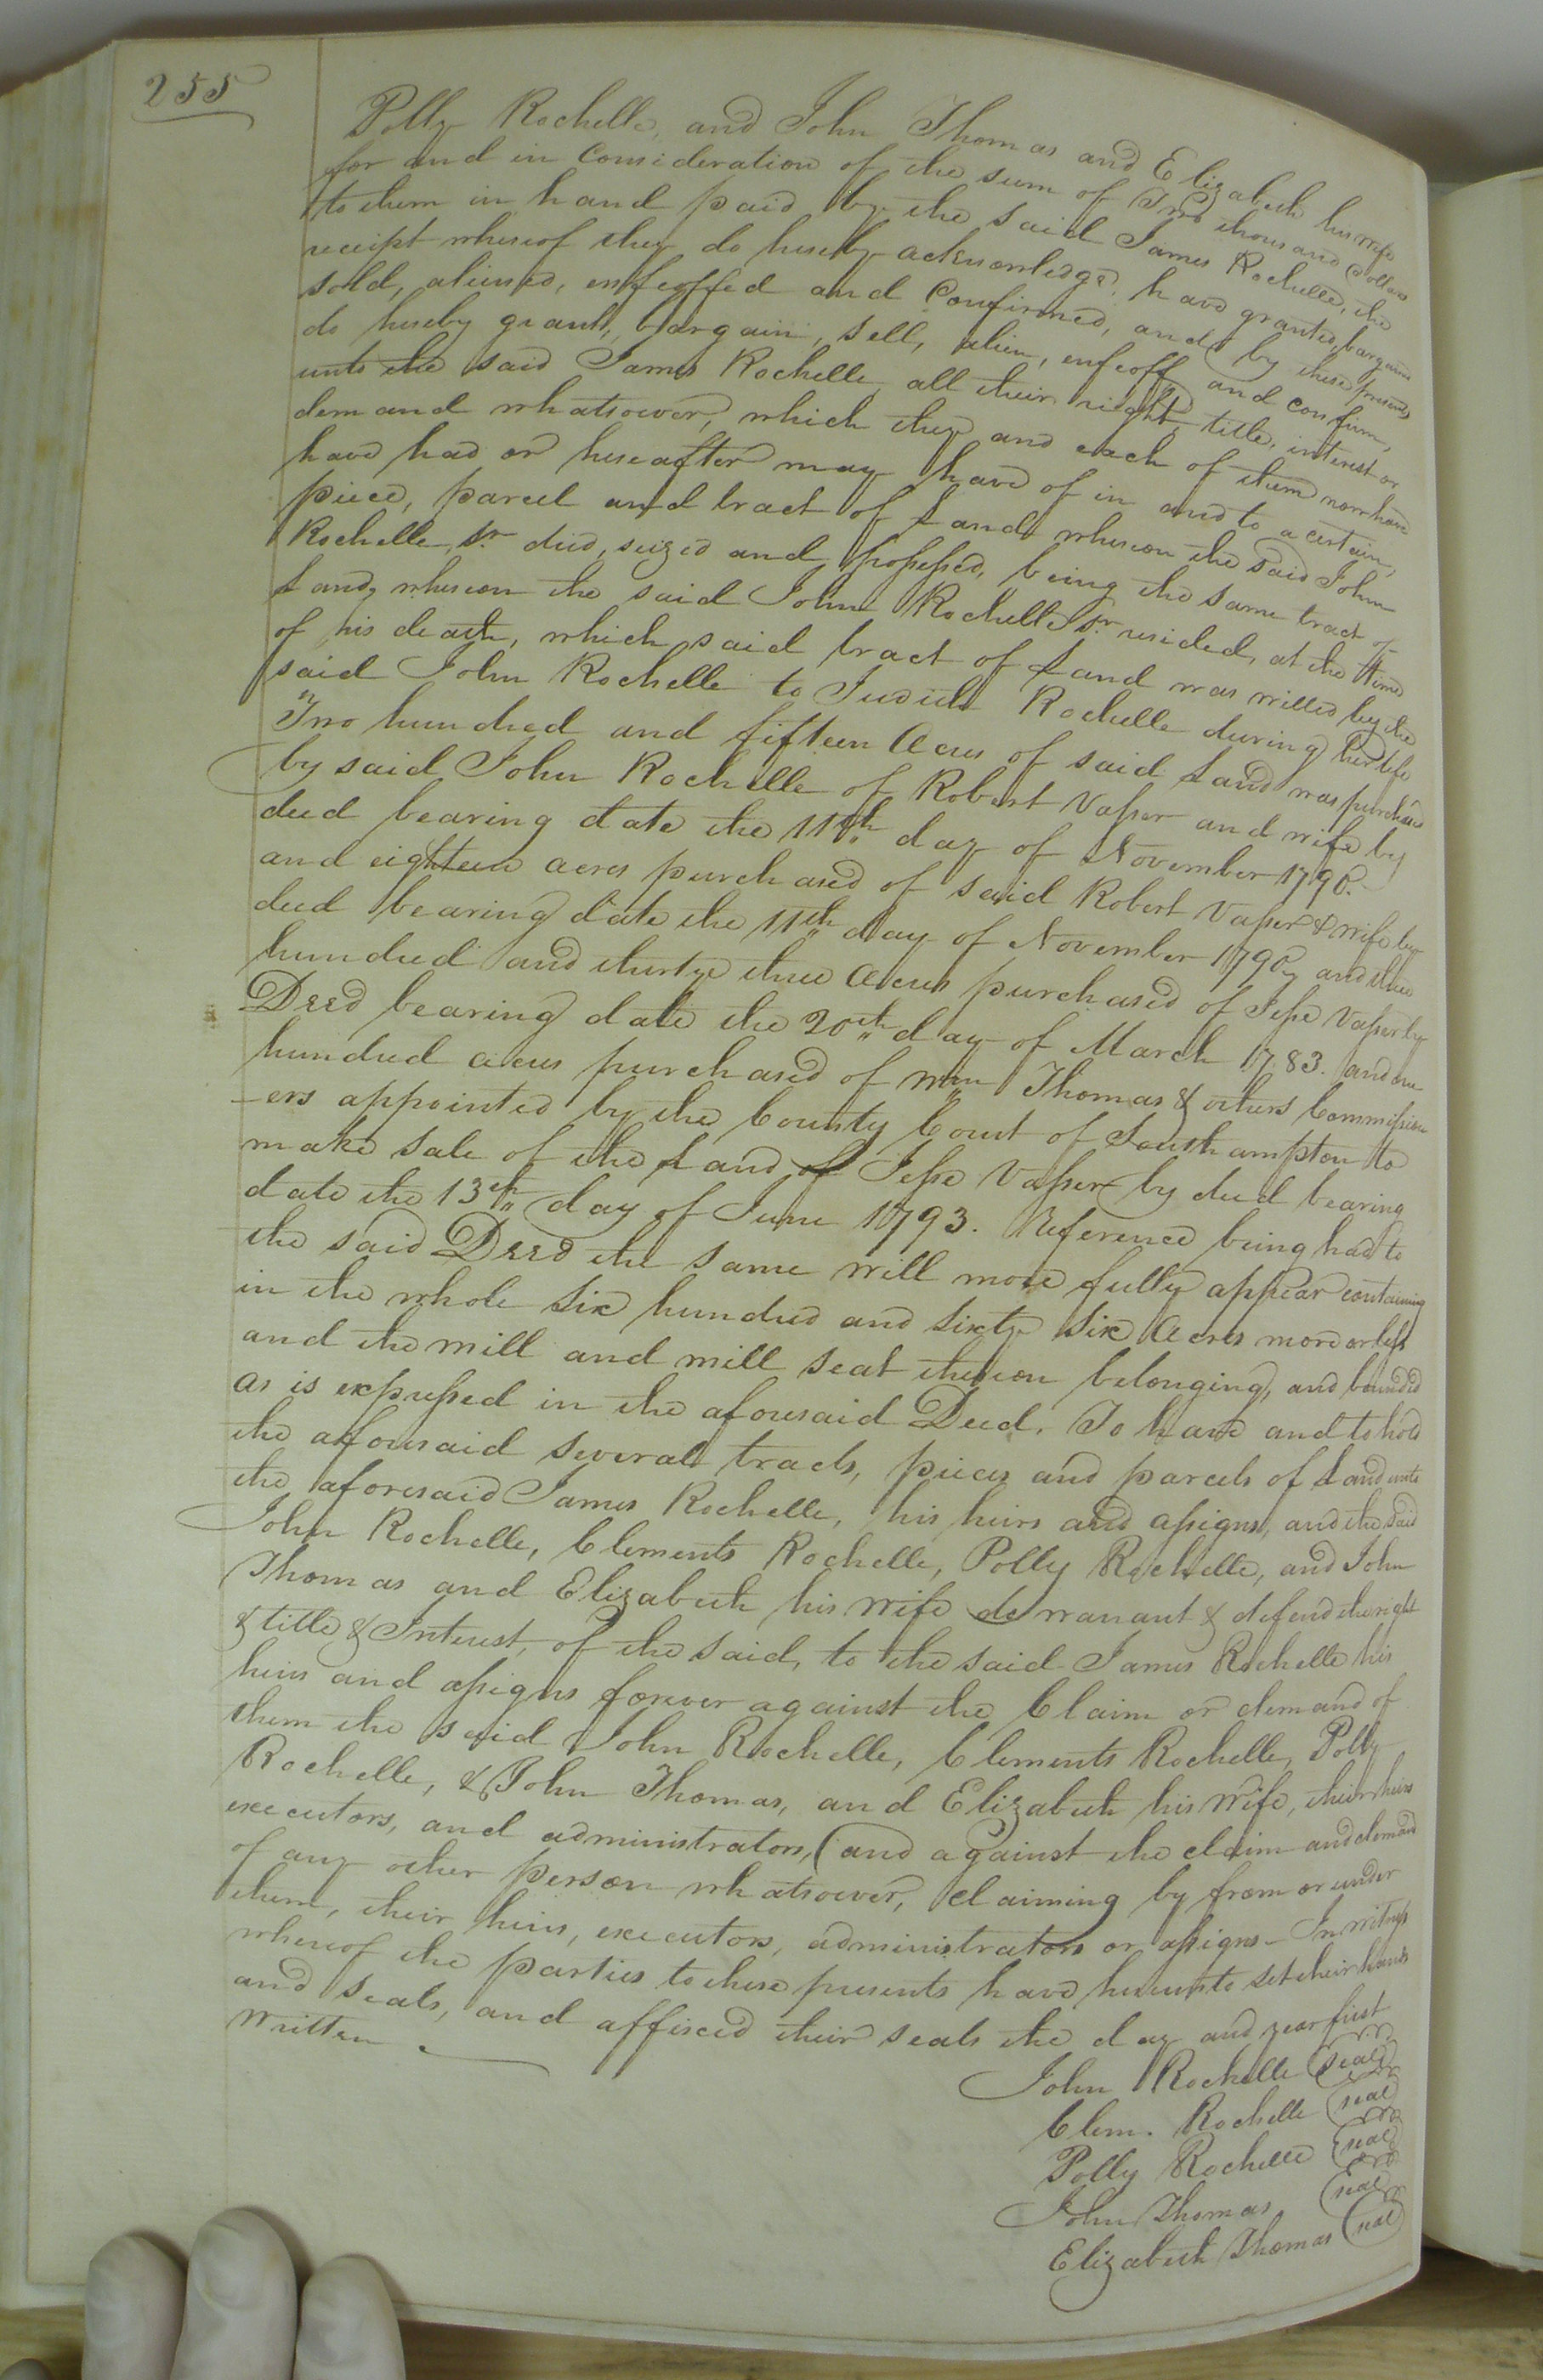 255
Polly Rochelle, and John Thomas and Elizabeth his wife
for and in Consideration of the sum of Two thousand Dollars
to them in hand paid by the said James Rochelle, the
receipt whereof they do hereby acknowledge, have granted, bargained
sold, aliened, enfeoffed and Confirmed, and by these presents
do hereby grant, bargain, sell, alien, enfeoff and confirm,
unto the said James Rochelle, all their right, title, interest or
demand whatsoever, which they and each of them now have
have had or hereafter may have of in and to a certain,
piece, parcel and tract of Land whereon the said John
Rochelle, Sr. died, seized and possessed, being the same tract of
Land, whereon the said John Rochelle Sr. resided, at the time
of his death, which said tract of Land was willed by the
said John Rochelle to Judith Rochelle during her life
Two hundred and fifteen Acres of said Land was purchased
by said John Rochelle of Robert Vasser and wife by
deed bearing date the 11th day of November 1790.
and eighteen acres purchased of said Robert Vasser & wife by
deed bearing date the 11th day of November 1790, and three
hundred and thirty three Acres purchased of Jesse Vasser by
Deed bearing date the 20th day of March 1783. and one
hundred acres purchased of Wm Thomas & others Commission
-ers appointed by the County Court of Southampton to
make sale of the Land of Jesse Vasser by deed bearing
date the 13th day of June 1793. Reference being had to
the said Deed the same will more fully appear containing
in the whole six hundred and sixty six Acres more or less
and the mill and mill seat thereon belonging, and bounded
as is expressed in the aforesaid Deed. To have and to hold
the aforesaid several tracts, pieces and parcels of Land unto
the aforesaid James Rochelle, his heirs and assigns, and the said
John Rochelle, Clements Rochelle, Polly Rochelle, and John
Thomas and Elizabeth his wife do warrant & defend the right
& title & Interest, of the said, to the said James Rochelle his
heirs and assigns forever against the Claim or demand of
them the said John Rochelle, Clements Rochelle, Polly
Rochelle, & John Thomas, and Elizabeth his wife, their heirs
executors, and administrators, (and against the claim and demand
of any other person whatsoever, claiming by from or under
them, their heirs, executors, administrators or assigns - In witness
whereof the parties to these presents have hereunto set their hands
and seals, and affixed their seals the day and year first
written
John Rochelle (seal)
Clem. Rochelle (seal)
Polly Rochelle (seal)
John Thomas (seal)
Elizabeth Thomas (seal)